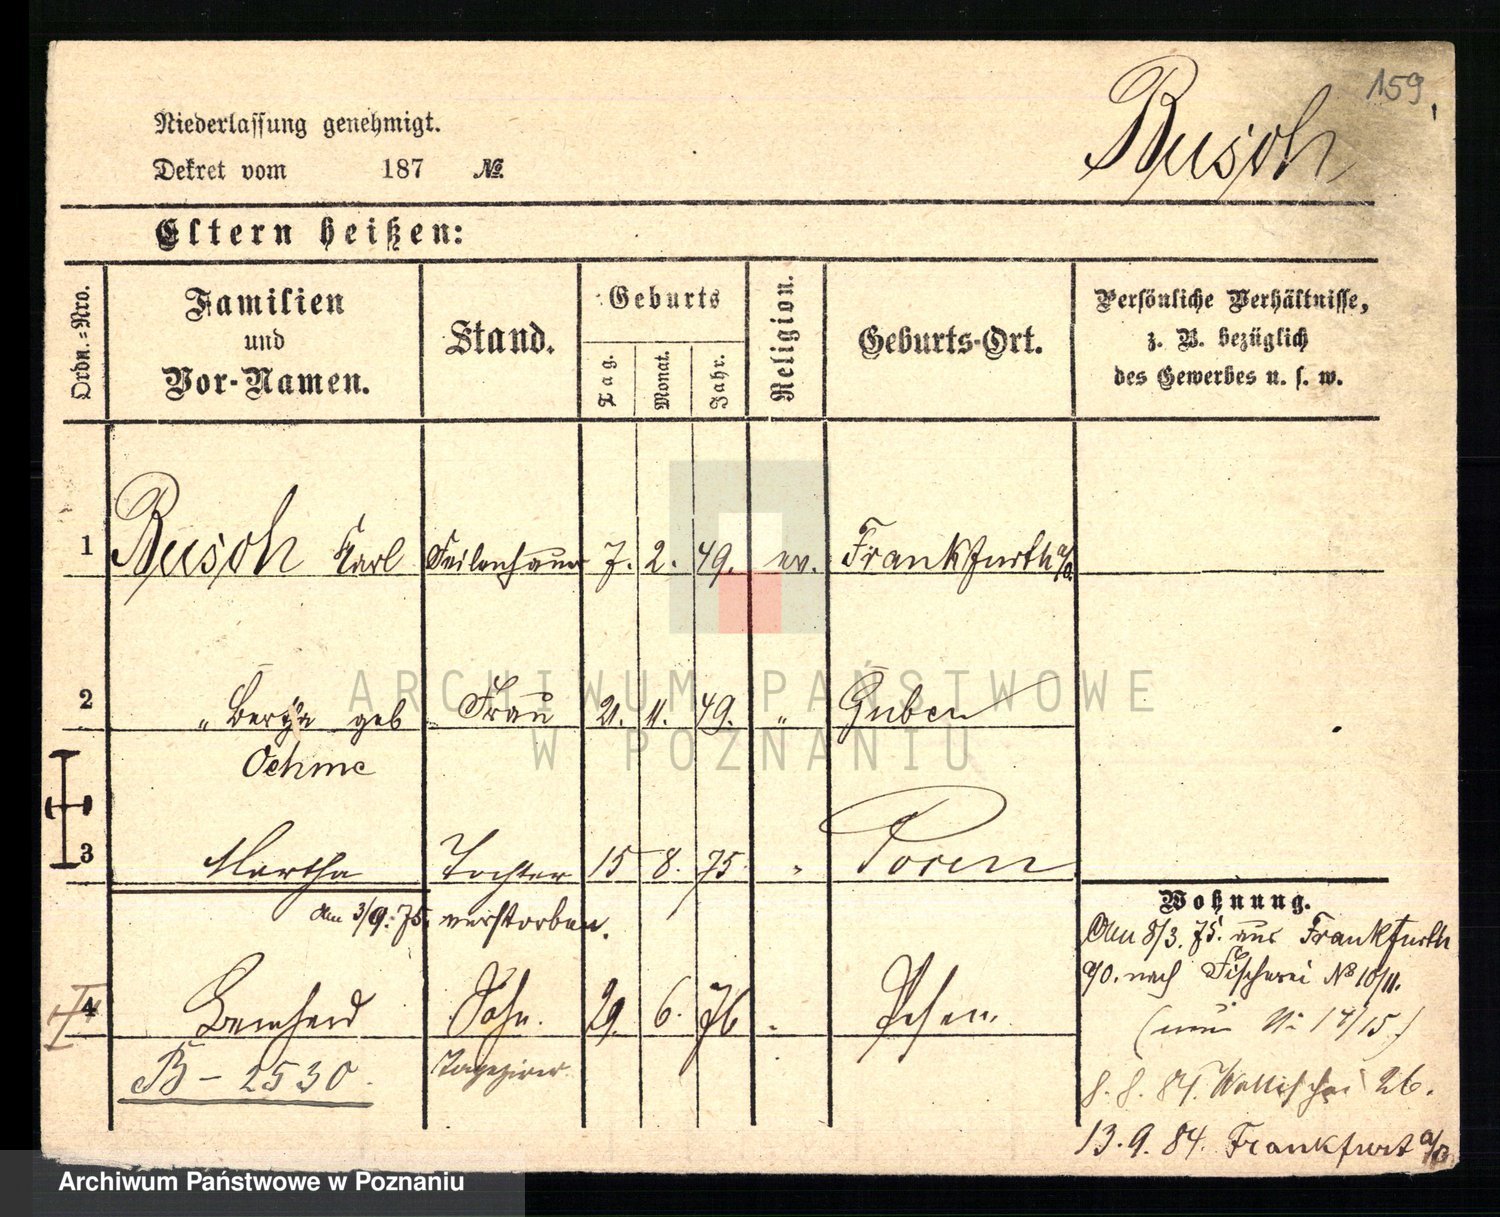 159
Busch
Niederlassung genehmigt.
Dekret vom 187 №
Eltern heißen:
Ordn.=Nro.
Familien
und
Vor-Namen.
Stand.
Geburts
Tag.
Monat.
Jahr.
Religion.
Geburts-Ort.
Persönliche Verhältnisse,
z. B. bezüglich
des Gewerbes u. s. w.
1 Busch Karl Feilenhauer 7. 2. 49. ev. Frankfurth a/O.
2 „ Bertha geb Frau 21. 11. 49. „ Guben
Oehme
3 Martha Tochter 15 8. 75. „ Posen
Am 3/9. 75. verstorben.
4 Bernhard Sohn. 29. 6. 76 „ Posen.
B - 2530. Tapezirer
Wohnung.
Am 8/3. 75. aus Frankfurth
a/O. nach Fischerei No 10/11.
(neu No 14/15.)
8. 8. 84. Wallischei 26.
13. 9. 84. Frankfurt a/O
ARCHIWUM PAŃSTWOWE
W POZNANIU
Archiwum Państwowe w Poznaniu